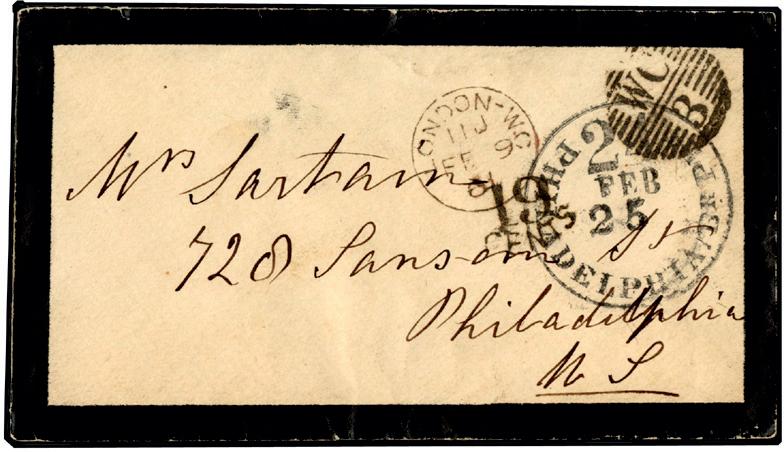 Mrs Sartain
728 Sansom St
Philadelphia
U S
LONDON-WC
9
FE
WC
B
19
CENTS
PHILADELPHIA
24
FEB
25